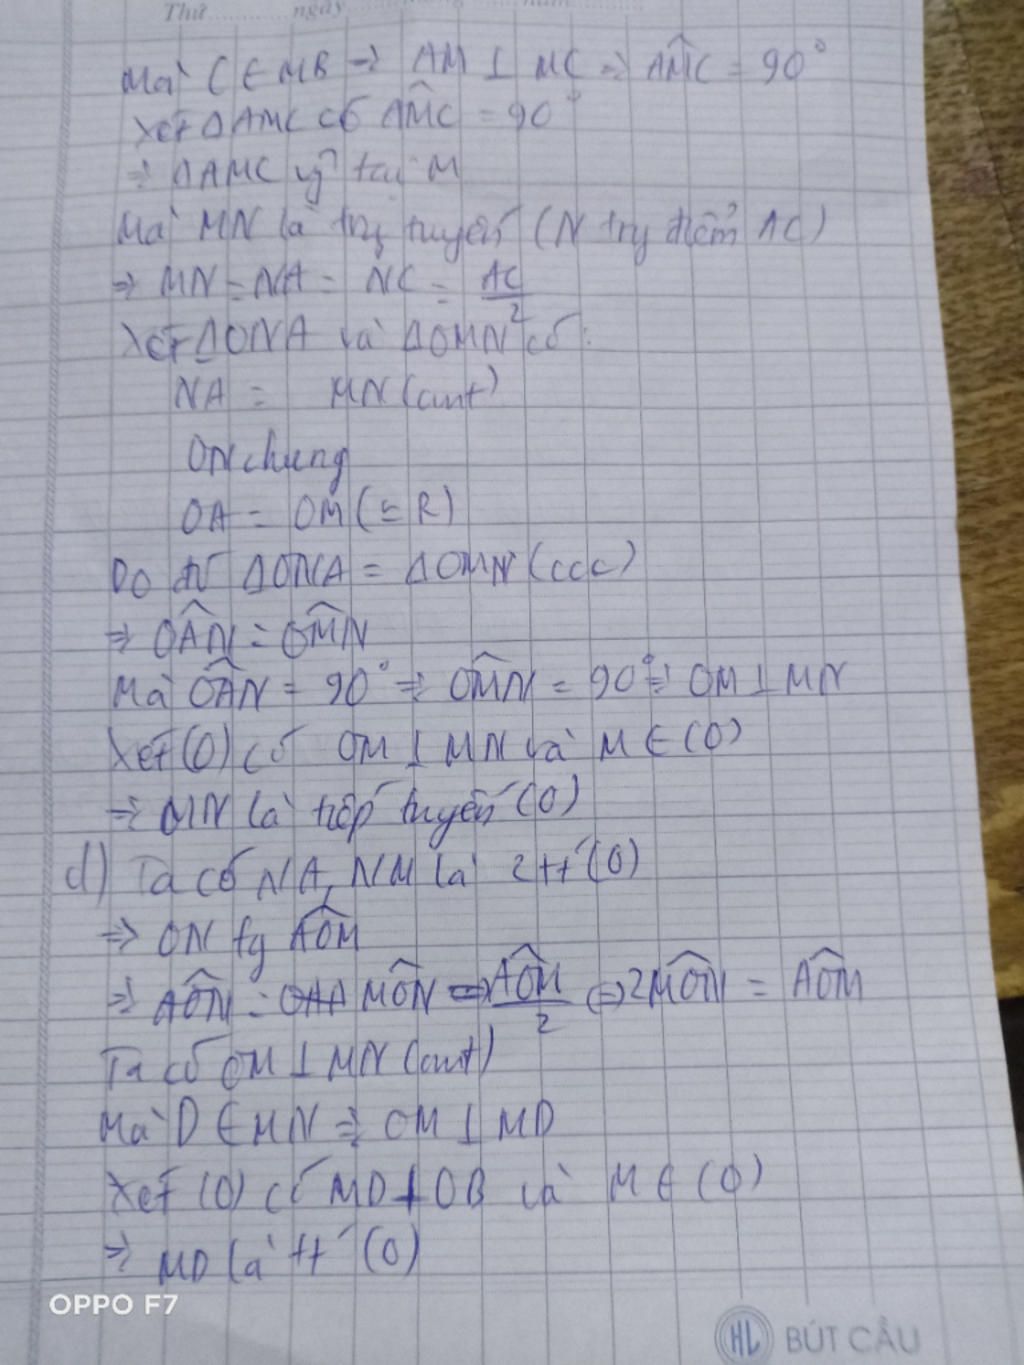 Thứ ngày năm
Mà C ∈ MB => AM ⊥ MC => AM̂C = 90°
Xét ΔAMC có AM̂C = 90°
=> ΔAMC vg tại M
Mà MN là trg tuyến (N trg điểm AC)
=> MN = NA = NC = AC/2
Xét ΔONA và ΔOMN có:
NA = MN (cmt)
ON chung
OA = OM (= R)
Do đó ΔONA = ΔOMN (ccc)
=> OÂN = OM̂N
Mà OÂN = 90° => OM̂N = 90° => OM ⊥ MN
Xét (O) có OM ⊥ MN và M ∈ (O)
=> MN là tiếp tuyến (O)
d) Ta có NA, NM là 2 tt (O)
=> ON fg AÔM
=> AÔN = MÔN = AÔM/2 <=> 2MÔN = AÔM
Ta có OM ⊥ MN (cmt)
Mà D ∈ MN => OM ⊥ MD
Xét (O) có MD ⊥ OB và M ∈ (O)
=> MD là tt (O)
OPPO F7
HL BÚT CẦU